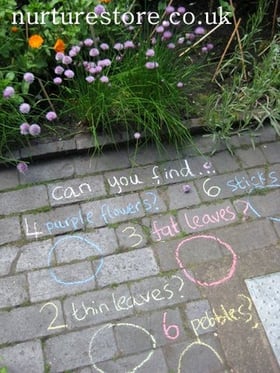 nurturestore.co.uk
can you find...
6 sticks
4 purple flowers?
3 fat leaves?
2 thin leaves?
6 pebbles?